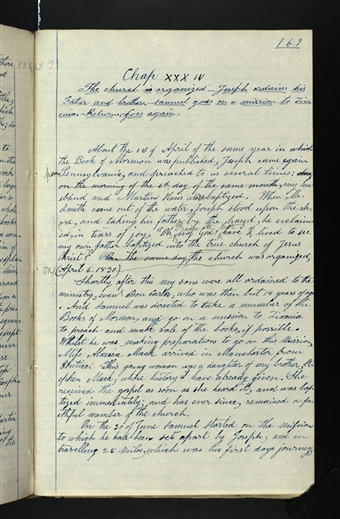 167
Chap XXXIV
The church is organized — Joseph ordains his
Father and brother — Samuel goes on a mission to
Returns — goes again.
About the 1st of April of the same year in which
the Book of Mormon was published, Joseph came again
Pennsylvania, and preached to us several times:
on the morning of the 6th day of the same month, my hus
band and Martin Haris was baptized. When Mr.
Smith came out of the water, Joseph stood upon the sh
ore, and taking his father by the hand, he exclaim
ed, in tears of joy, "Oh my God! have I lived to see
my own father baptized into the true church of Jesus
Christ!" the same day, the church was organized,
(April 6. 1830)
Shortly after this my sons were all ordained to the
ministry, even Don Carlos, who was then but 14 years of age
And Samuel was directed to take a number of the
Books of Mormon, and go on a mission to Livonia
to preach and make sale of the books, if possible.
Whilst he was making preparations to go on this mission,
Miss Almira Mack arrived in Manchester from
This young woman was a daughter of my brother, St
ephen Mack, whose history I have already given. She
received the gospel as soon as she heard it, and was bap
tized immediately; and has ever since, remained a fa
ithful member of the church.
On the 30 of June Samuel started on the mission
to which he had been set apart by Joseph, and in
travelling 25 miles, which was his first days journey,